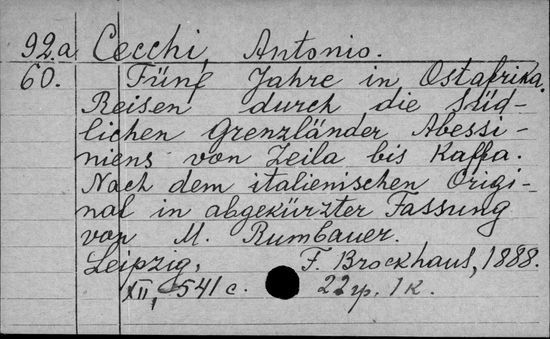 92.a Cecchi, Antonio.
60. Fünf Jahre in Ostafrika.
Reisen durch die süd-
lichen Grenzländer Abessi-
niens von Zeila bis Kaffa.
Nach dem italienischen Origi-
nal in abgekürzter Fassung
von M. Rumbauer.
Leipzig, F. Brockhaus, 1888.
XII, 541 c. 22 p. 1 K.